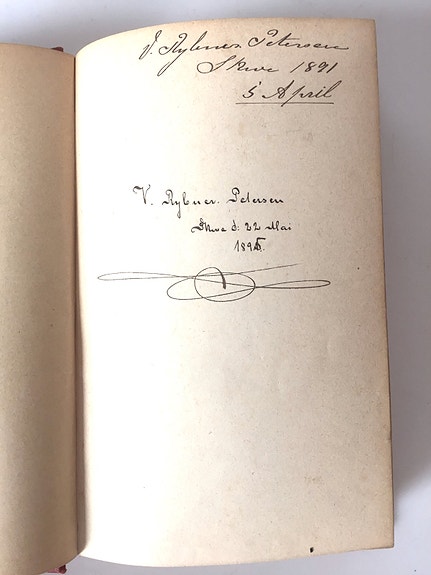 J. Rybner Petersen
Skive 1891
5 April
V. Rybner. Petersen
Skive d: 22 Mai
1895.